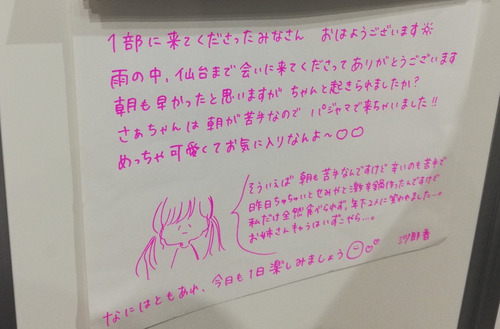 1部に来てくださったみなさん おはようございます☼
雨の中、仙台まで会いに来てくださってありがとうございます
朝も早かったと思いますが ちゃんと起きられましたか?
さぁちゃんは 朝が苦手なので パジャマで来ちゃいました!!
めっちゃ可愛くてお気に入りなんよ〜♡♡
そういえば 朝も苦手なんですけど 辛いのも苦手で
昨日ちゅちゃいとせみかと激辛鍋作ったんですけど
私だけ全然食べられず、年下2人に笑われました…。
お姉さんキャラはいずこやら…。
なにはともあれ、今日も1日楽しみましょう